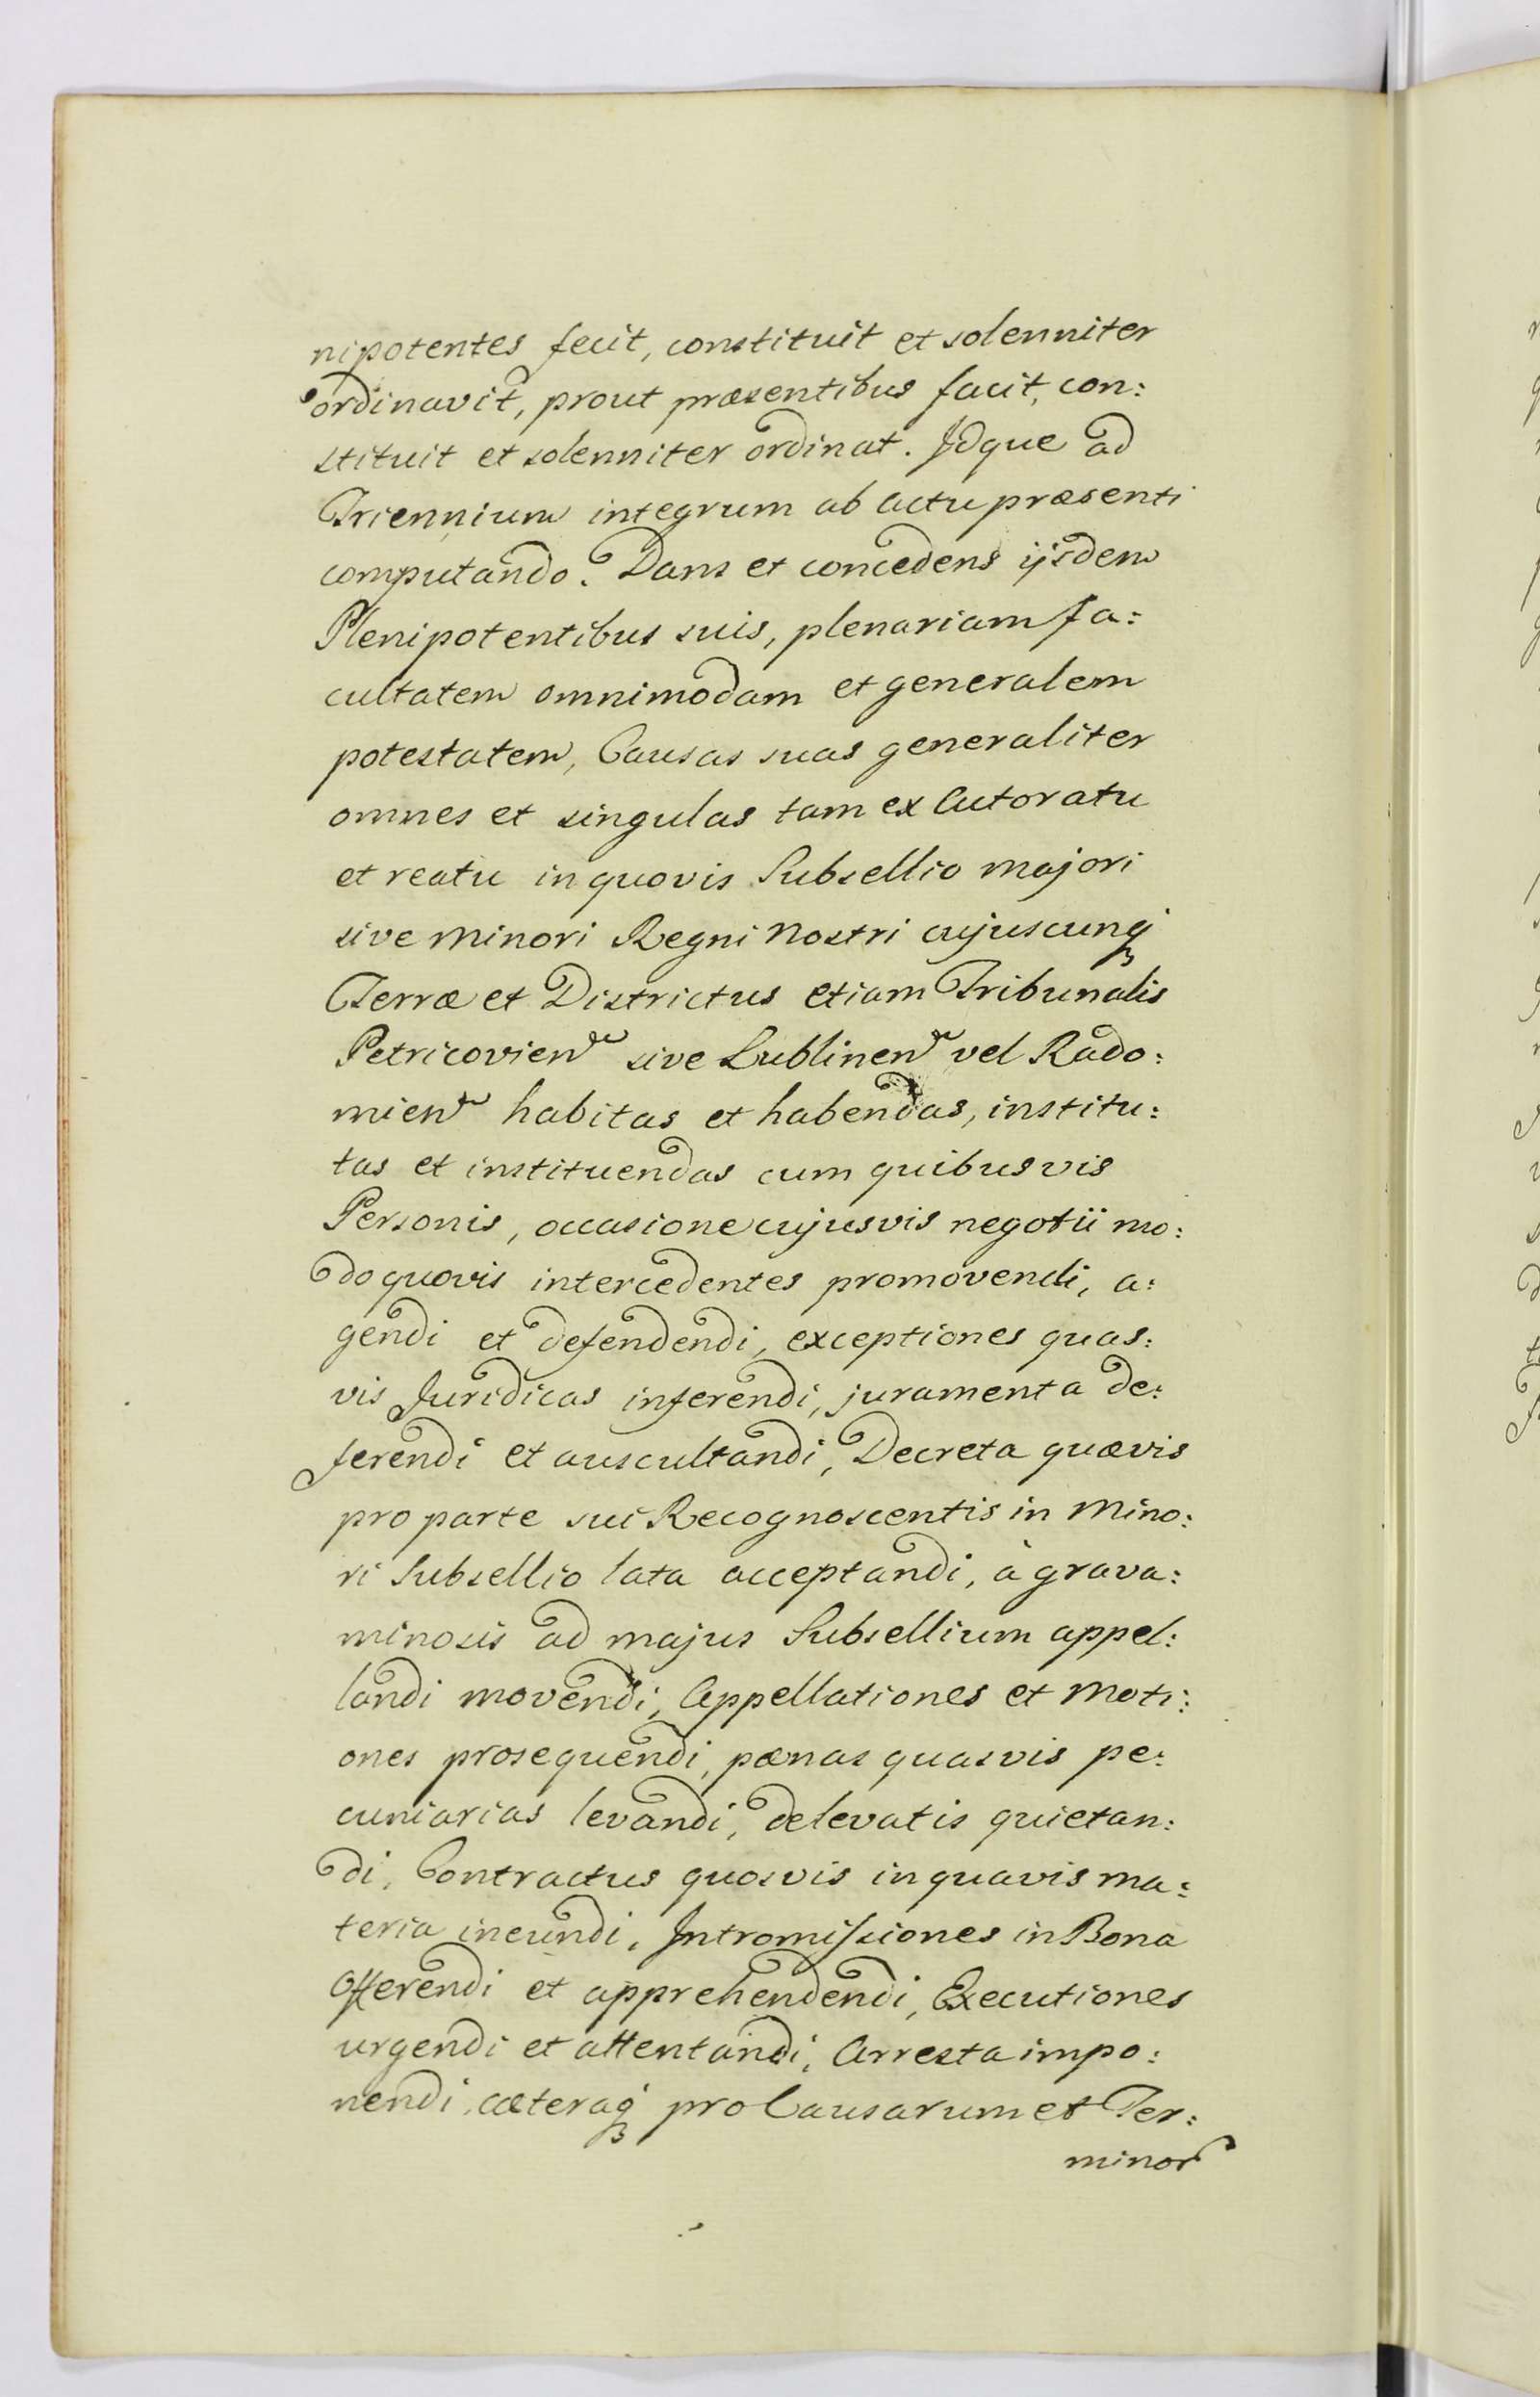 nipotentes fecit, constituit et solenniter
ordinavit, prout præsentibus facit, con:
stituit et solenniter ordinat. Idque ad
Triennium integrum ab actu præsenti
computando. Dans et concedens ijsdem
Plenipotentibus suis, plenariam fa:
cultatem omnimodam et generalem
potestatem, Causas suas generaliter
omnes et singulas tam ex Actoratu
et reatu in quovis Subsellio majori
sive minori Regni Nostri cujuscunq
Terræ et Districtus etiam Tribunalis
Petricovien sive Lublinen vel Rado:
mien habitas et habendas, institu:
tas et instituendas cum quibusvis
Personis, occasione cujusvis negotii mo:
do quovis intercedentes promovendi, a:
gendi et defendendi, exceptiones quas:
vis Juridicas inferendi, juramenta de:
ferendi et auscultandi, Decreta quævis
pro parte sui Recognoscentis in Mino:
ri Subsellio lata acceptandi, à grava:
minosis ad majus Subsellium appel:
landi movendi, Appellationes et Moti:
ones prosequendi, pænas quasvis pe:
cuniarias levandi, de levatis quietan:
di, Contractus quosvis in quavis ma:
teria ineundi, Intromissiones in Bona
Offerendi et apprehendendi, Executiones
urgendi et attentandi, Arresta impo:
nendi, cæteraq pro Causarum et Ter:
minor